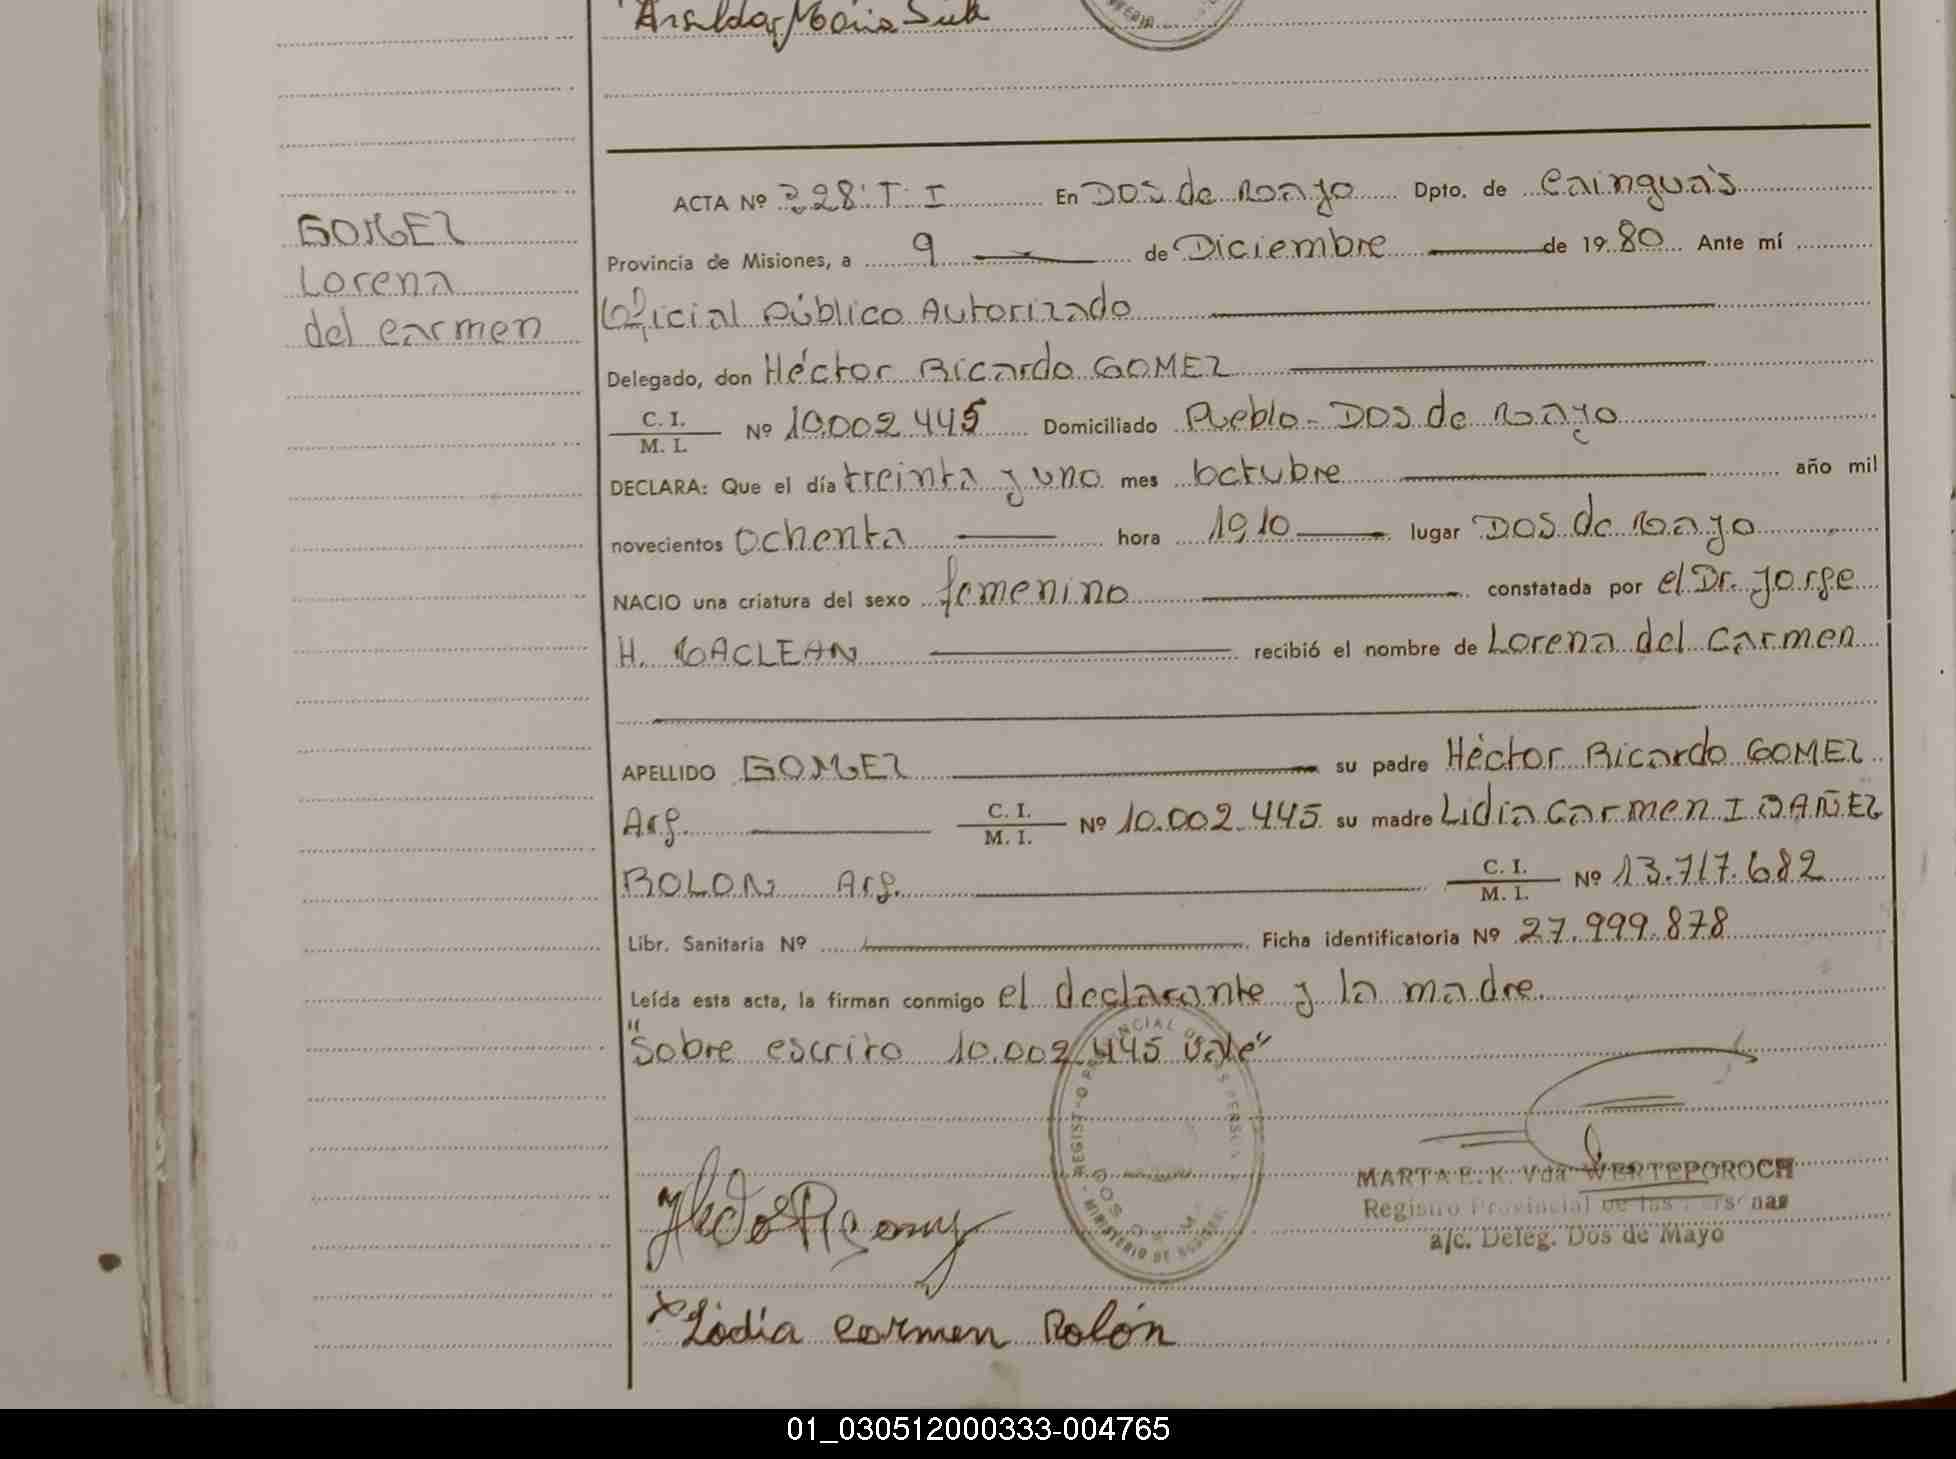 GOMEZ
Lorena
del Carmen
ACTA Nº 328. T. I En Dos de Mayo Dpto. de Cainguás
Provincia de Misiones, a 9 de Diciembre de 1980 Ante mí
Oficial Público Autorizado
Delegado, don Héctor Ricardo GOMEZ
C. I.
M. I. Nº 10.002.445 Domiciliado Pueblo - Dos de Mayo
DECLARA: Que el día treinta y uno mes octubre año mil
novecientos ochenta hora 19,10 lugar Dos de Mayo
NACIO una criatura del sexo femenino constatada por el Dr. Jorge
H. MACLEAN recibió el nombre de Lorena del Carmen
APELLIDO GOMEZ su padre Héctor Ricardo GOMEZ
Arg. C. I.
M. I. Nº 10.002.445 su madre Lidia Carmen IBAÑEZ
ROLON Arg. C. I.
M. I. Nº 13.717.682
Libr. Sanitaria Nº Ficha identificatoria Nº 27.999.878
Leída esta acta, la firman conmigo el declarante y la madre.
"Sobre escrito 10.002.445 vale"
MARTA E. K. Vda WERTEPOROCH
Registro Provincial de las Personas
a/c. Deleg. Dos de Mayo
Lidia Carmen Rolón
01_030512000333-004765